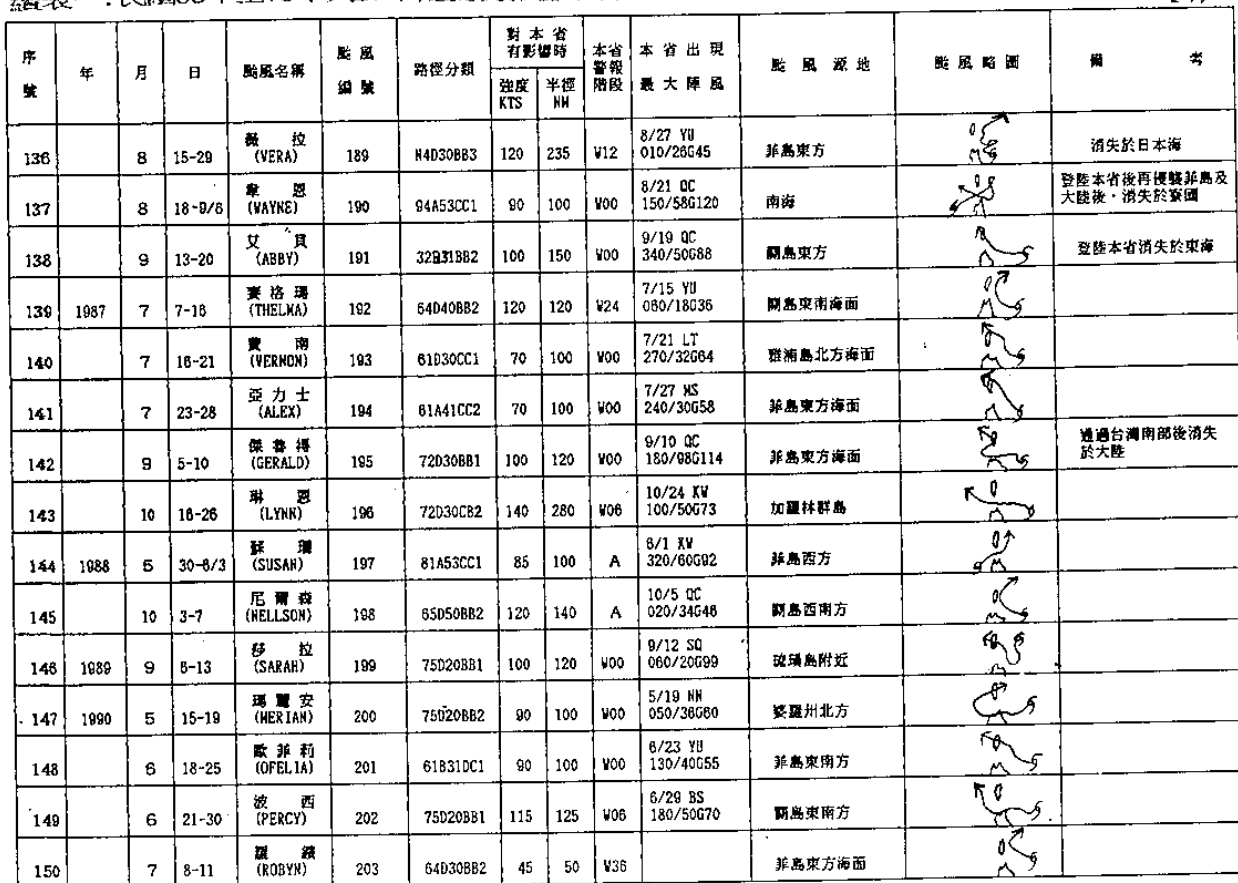 序號 年 月 日 颱風名稱 颱風編號 路徑分類 對本省有影響時 強度KTS 半徑NM 本省警報階段 本省出現最大陣風 颱風源地 颱風略圖 備考
136 8 15-29 薇拉 (VERA) 189 N4D30BB3 120 235 W12 8/27 YU 010/26G45 菲島東方 消失於日本海
137 8 18-9/6 韋恩 (WAYNE) 190 94A53CC1 90 100 W00 8/21 QC 150/58G120 南海 登陸本省後再侵襲菲島及大陸後,消失於寮國
138 9 13-20 艾貝 (ABBY) 191 32B31BB2 100 150 W00 9/19 QC 340/50G88 關島東方 登陸本省消失於東海
139 1987 7 7-16 賽洛瑪 (THELMA) 192 64D40BB2 120 120 W24 7/15 YU 060/18G36 關島東南海面
140 7 16-21 費南 (VERNON) 193 61D30CC1 70 100 W00 7/21 LT 270/32G64 雅浦島北方海面
141 7 23-28 亞力士 (ALEX) 194 61A41CC2 70 100 W00 7/27 MS 240/30G58 菲島東方海面
142 9 5-10 傑魯得 (GERALD) 195 72D30BB1 100 120 W00 9/10 QC 180/98G114 菲島東方海面 通過台灣南部後消失於大陸
143 10 16-26 琳恩 (LYNN) 196 72D30CB2 140 280 W06 10/24 KW 100/50G73 加羅林群島
144 1988 5 30-6/3 蘇珊 (SUSAN) 197 81A53CC1 85 100 A 6/1 KW 320/60G92 菲島西方
145 10 3-7 尼爾森 (NELLSON) 198 65D50BB2 120 140 A 10/5 QC 020/34G46 關島西南方
146 1989 9 6-13 莎拉 (SARAH) 199 75D20BB1 100 120 W00 9/12 SQ 060/20G99 琉璜島附近
147 1990 5 15-19 瑪麗安 (MERIAN) 200 75D20BB2 90 100 W00 5/19 NN 050/36G60 婆羅州北方
148 6 18-25 歐菲莉 (OFELIA) 201 61B31DC1 90 100 W00 6/23 YU 130/40G55 菲島東南方
149 6 21-30 波西 (PERCY) 202 75D20BB1 115 125 W06 6/29 BS 180/50G70 關島東南方
150 7 8-11 羅繽 (ROBYN) 203 64D30BB2 45 50 W36 菲島東方海面